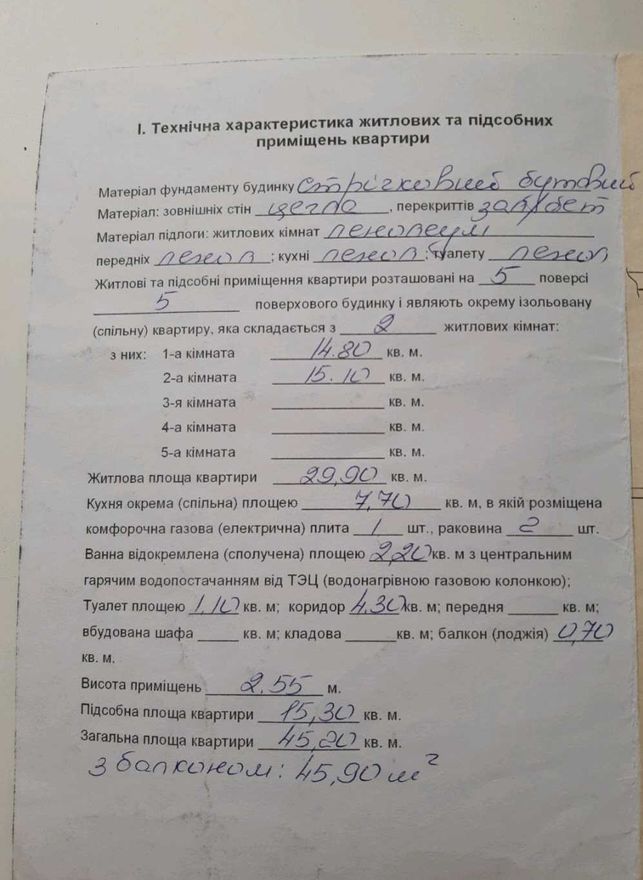 І. Технічна характеристика житлових та підсобних
приміщень квартири
Матеріал фундаменту будинку стрічковий бутовий
Матеріал: зовнішніх стін цегла, перекриттів зал/бет
Матеріал підлоги: житлових кімнат линолеум
передніх линол; кухні линол; туалету линол
Житлові та підсобні приміщення квартири розташовані на 5 поверсі
5 поверхового будинку і являють окрему ізольовану
(спільну) квартиру, яка складається з 2 житлових кімнат:
з них: 1-а кімната 14.80 кв. м.
2-а кімната 15.10 кв. м.
3-я кімната кв. м.
4-а кімната кв. м.
5-а кімната кв. м.
Житлова площа квартири 29,90 кв. м.
Кухня окрема (спільна) площею 7,70 кв. м, в якій розміщена
комфорочна газова (електрична) плита 1 шт., раковина 2 шт.
Ванна відокремлена (сполучена) площею 2,20 кв. м з центральним
гарячим водопостачанням від ТЭЦ (водонагрівною газовою колонкою);
Туалет площею 1,10 кв. м; коридор 4,30 кв. м; передня кв. м;
вбудована шафа кв. м; кладова кв. м; балкон (лоджія) 0,70
кв. м.
Висота приміщень 2.55 м.
Підсобна площа квартири 15,30 кв. м.
Загальна площа квартири 45,20 кв. м.
з балконом: 45,90 м²